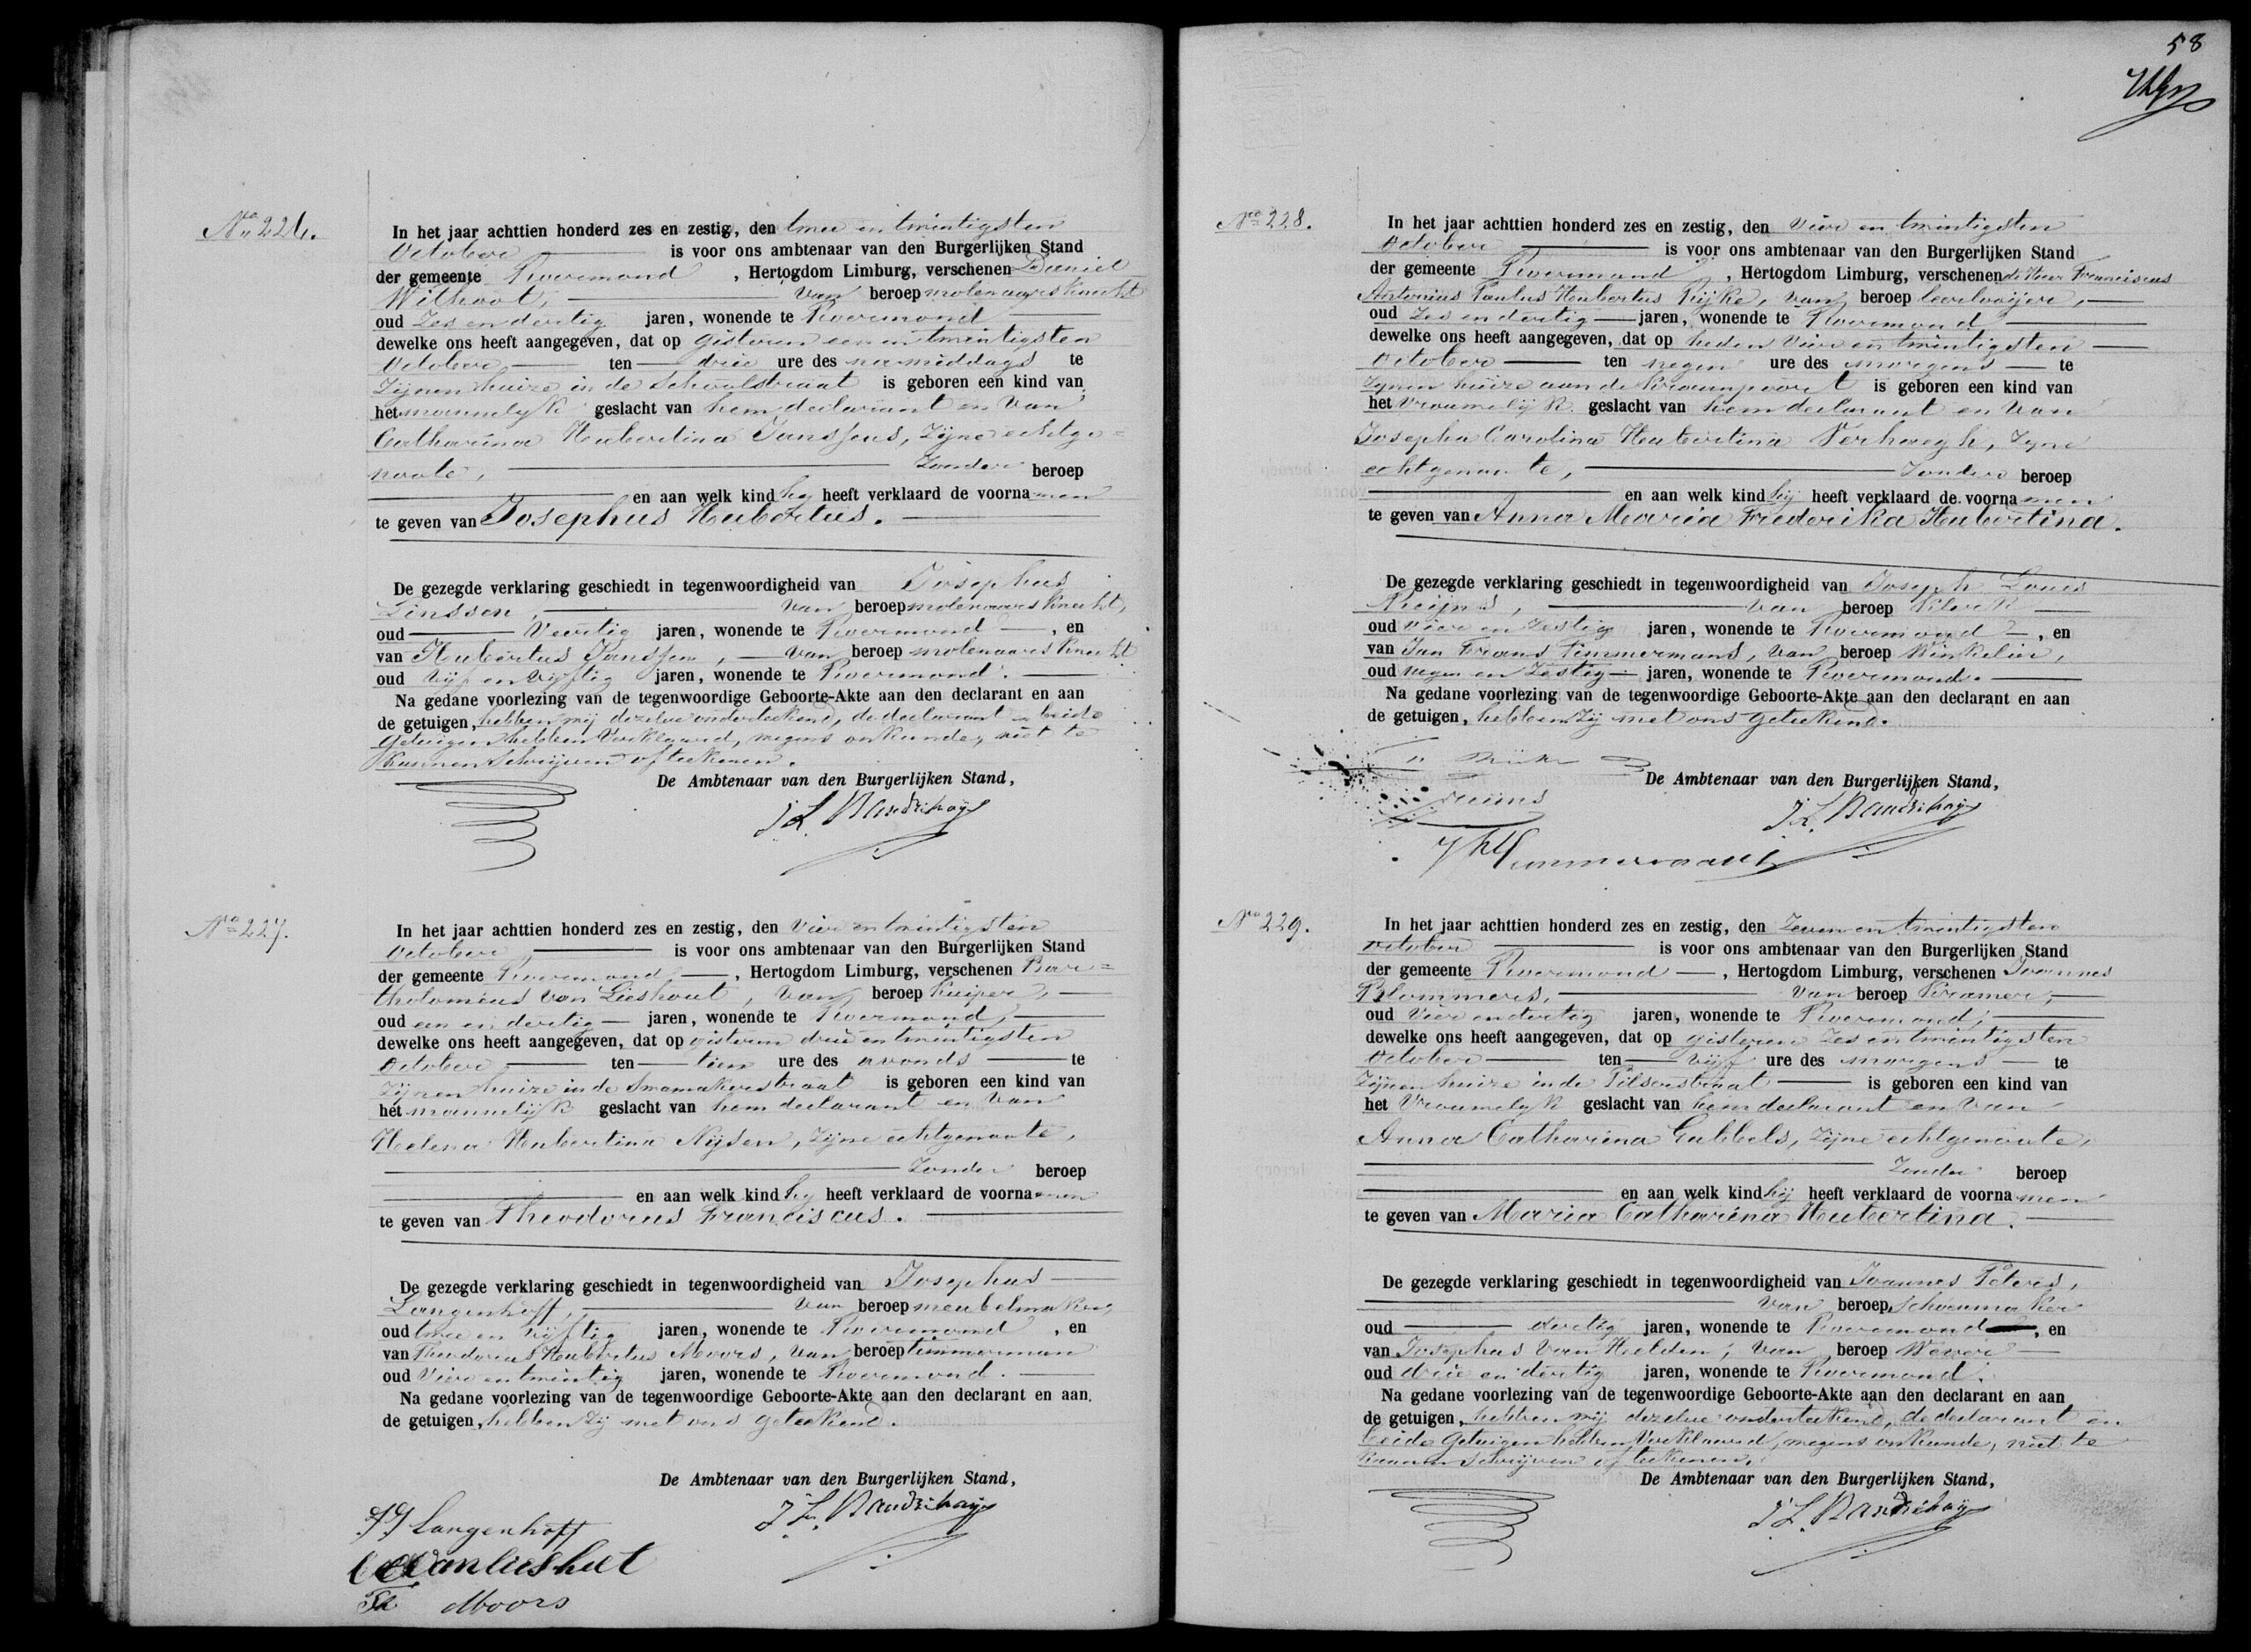 No 226.
In het jaar achttien honderd zes en zestig, den twee en twintigsten
October is voor ons ambtenaar van den Burgerlijken Stand
der gemeente Roermond, Hertogdom Limburg, verschenen Daniel
Withoot, van beroep molenaarsknecht
oud zes en dertig jaren, wonende te Roermond
dewelke ons heeft aangegeven, dat op gisteren een en twintigsten
October ten drie ure des namiddags te
zijnen huize in de Schoolstraat is geboren een kind van
het mannelijk geslacht van hem declarant en van
Catharina Hubertina Janssens, zijne echtge=
noote, zonder beroep
en aan welk kind hij heeft verklaard de voornamen
te geven van Josephus Hubertus.
De gezegde verklaring geschiedt in tegenwoordigheid van Josephus
Linssen, van beroep molenaarsknecht,
oud Veertig jaren, wonende te Roermond, en
van Hubertus Janssen, van beroep molenaarsknecht
oud vijf en vijftig jaren, wonende te Roermond.
Na gedane voorlezing van de tegenwoordige Geboorte-Akte aan den declarant en aan
de getuigen, hebben wij dezelve onderteekend, de declarant en beide
getuigen hebben verklaard, wegens onkunde, niet te
kunnen schrijven of teekenen.
De Ambtenaar van den Burgerlijken Stand,
No 227.
In het jaar achttien honderd zes en zestig, den vier en twintigsten
October, is voor ons ambtenaar van den Burgerlijken Stand
der gemeente Roermond, Hertogdom Limburg, verschenen Bar=
tholomeus van Lieshout, van beroep kuiper,
oud een en dertig jaren, wonende te Roermond,
dewelke ons heeft aangegeven, dat op gisteren drie en twintigsten
October ten tien ure des avonds te
zijnen huize in de Swamakerstraat is geboren een kind van
het mannelijk geslacht van hem declarant en van
Helena Hubertina Nijsen, zijne echtgenoote,
zonder beroep
en aan welk kind hij heeft verklaard de voornamen
te geven van Theodorus Franciscus.
De gezegde verklaring geschiedt in tegenwoordigheid van Josephus
Langenhoff, van beroep meubelmaker,
oud twee en vijftig jaren, wonende te Roermond, en
van Theodorus Hubertus Moors, van beroep timmerman
oud vier en twintig jaren, wonende te Roermond.
Na gedane voorlezing van de tegenwoordige Geboorte-Akte aan den declarant en aan
de getuigen, hebben zij met ons geteekend.
De Ambtenaar van den Burgerlijken Stand,
Langenhoff
van lieshut
Th Moors
58
No 228.
In het jaar achttien honderd zes en zestig, den vier en twintigsten
October is voor ons ambtenaar van den Burgerlijken Stand
der gemeente Roermond, Hertogdom Limburg, verschenen de Heer Franciscus
Antonius Paulus Hubertus Rijke, van beroep leerlooijer,
oud zes en dertig jaren, wonende te Roermond
dewelke ons heeft aangegeven, dat op heden vier en twintigsten
October ten negen ure des morgens te
zijnen huize aan de Kraanpoort is geboren een kind van
het vrouwelijk geslacht van hem declarant en van
Josepha Carolina Hubertina Verhaegh, zijne
echtgenoote, zonder beroep
en aan welk kind hij heeft verklaard de voornamen
te geven van Anna Maria Frederika Hubertina.
De gezegde verklaring geschiedt in tegenwoordigheid van Joseph Louis
Reijns, van beroep klerk
oud vier en zestig jaren, wonende te Roermond, en
van Jan Frans Timmermans, van beroep Winkelier,
oud negen en zestig jaren, wonende te Roermond.
Na gedane voorlezing van de tegenwoordige Geboorte-Akte aan den declarant en aan
de getuigen, hebben zij met ons geteekend.
De Ambtenaar van den Burgerlijken Stand,
No 229.
In het jaar achttien honderd zes en zestig, den zeven en twintigsten
October is voor ons ambtenaar van den Burgerlijken Stand
der gemeente Roermond, Hertogdom Limburg, verschenen Joannes
Blommers, van beroep Kramer,
oud vier en dertig jaren, wonende te Roermond,
dewelke ons heeft aangegeven, dat op gisteren zes en twintigsten
October ten vijf ure des morgens te
zijnen huize in de Pilserstraat is geboren een kind van
het vrouwelijk geslacht van hem declarant en van
Anna Catharina Gubbels, zijne echtgenoote,
zonder beroep
en aan welk kind hij heeft verklaard de voornamen
te geven van Maria Catharina Hubertina.
De gezegde verklaring geschiedt in tegenwoordigheid van Joannes Peters,
van beroep Schoenmaker
oud dertig jaren, wonende te Roermond, en
van Josephus van Helden, van beroep Wever
oud drie en dertig jaren, wonende te Roermond.
Na gedane voorlezing van de tegenwoordige Geboorte-Akte aan den declarant en aan
de getuigen, hebben wij dezelve onderteekend, de declarant en
beide getuigen hebben verklaard, wegens onkunde, niet te
kunnen schrijven of teekenen.
De Ambtenaar van den Burgerlijken Stand,